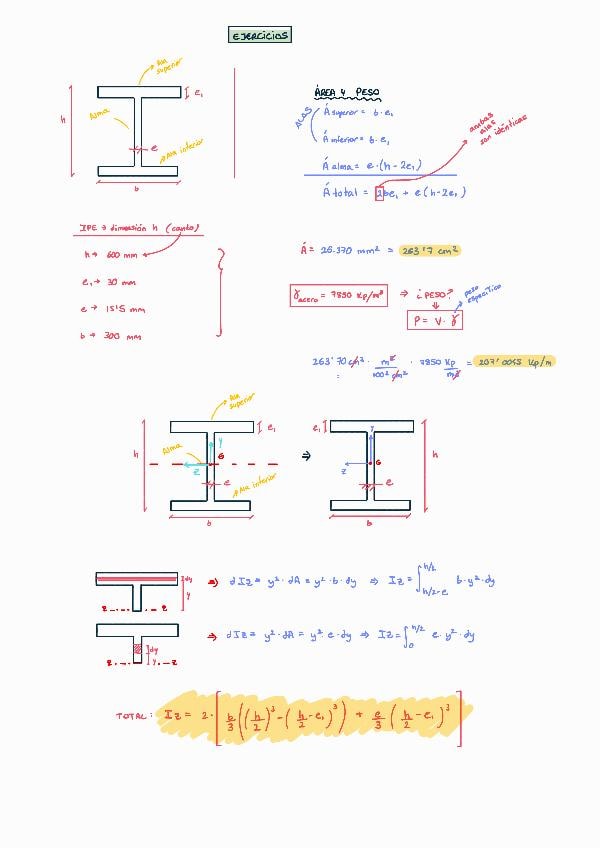 EJERCICIOS
Ala superior
e₁
h
Alma
e
Ala inferior
b
ÁREA Y PESO
ALAS
Á superior = b·e₁
Á inferior = b·e₁
Á alma = e·(h-2e₁)
Á total = 2be₁ + e(h-2e₁)
ambas alas son idénticas
IPE → dimensión h (canto)
h → 600 mm
e₁ → 30 mm
e → 15'5 mm
b → 300 mm
Á = 26.370 mm² = 263'7 cm²
γacero = 7850 Kp/m³ ⇒ ¿PESO?
peso específico
P = V·γ
263'70 cm² · m²/100² cm² · 7850 Kp/m³ = 207'0045 Kp/m
=
Ala superior
e₁
h
Alma
y
G
z
e
Ala inferior
b
⇒
e₁
y
G
z
e
h
b
dy
y
z z
⇒ dIz = y²·dA = y²·b·dy ⇒ Iz = ∫_{h/2-e}^{h/2} b·y²·dy
dy
y
z z
⇒ dIz = y²·dA = y²·e·dy ⇒ Iz = ∫_0^{h/2} e·y²·dy
TOTAL: Iz = 2·[b/3((h/2)³-(h/2-e₁)³) + e/3(h/2-e₁)³]